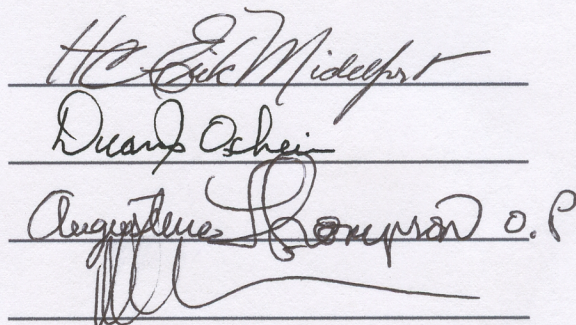 HC Erik Midelfort
Duane Osheim
Augustine Thompson O.P